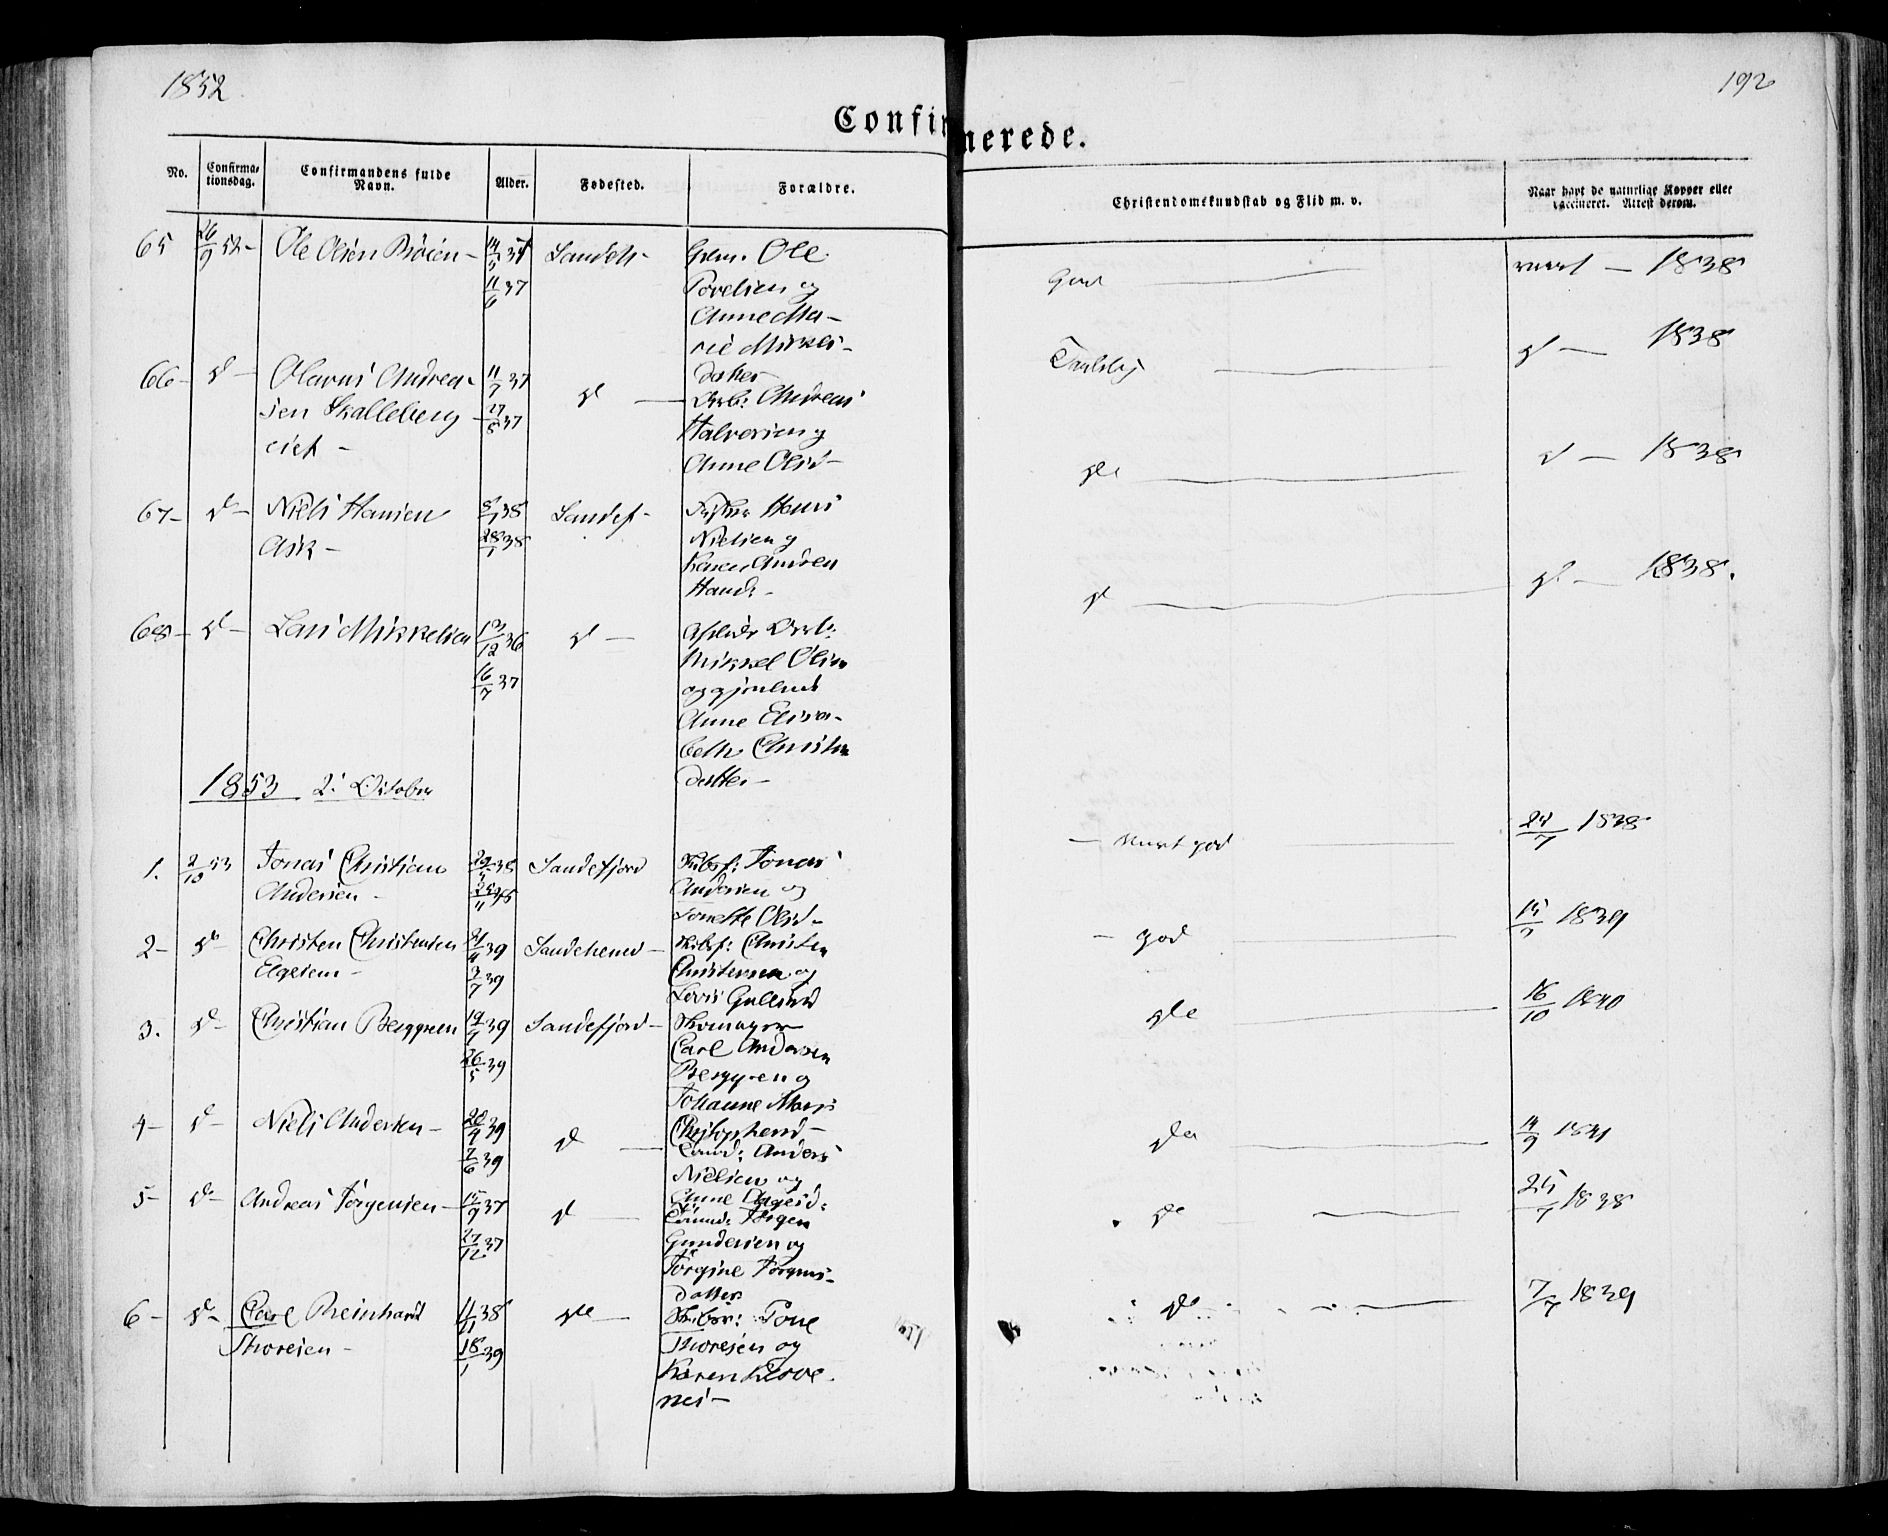 1852
192
Confirmerede.
No.
Confirma-
tionsdag.
Confirmandens fulde
Navn.
Alder.
Fødested.
Forældre.
Christendomskundskab og Flid m. v.
Naar havt de naturlige Kopper eller
vaccineret. Attest derom.
65 26/9 52 – Ole Olsen – Sandeh –
11/6 37
Ole
og
Anne Ma-
rie Mikkels-
datter
God
1838
66 – d – Olavus Andrea-
sen Skalleberg
eiet –
11/7 37
27/8 37
d –
Andreas
Halvorsen og
Anne Olsd –
d – 1838
67 – d – Niels Hansen
Ask –
8/1 38
28/1 38
Sandef –
Hans
Nielsen og
Karen Andrea
Hansd –
do
d – 1838
68 – d – Lars Mikkelsen
13/12 36
16/7 37
d –
Mikkel Olsen
og gjenlevd
Anne Elisa-
beth Christen
datter –
d
d – 1838.
1853 2. October
1. 2/10 53 Jonas Christian
Andersen –
Sandefjord
Skibsf: Jonas
Andersen og
Olsd –
– meget god
24/7 1838
2 – d – Christen Christensen
Elgesem –
3/7 39
Sandeherred –
Skibsf: Christen
Christensen og
– god
1839
3. d – Christian Berggreen
19/4 39
26/5 39
Sandefjord –
Skomager
Carl Andersen
Berggren og
Johanne Marie
Christophersd –
do
16/10 1840
4 – d – Niels Andersen –
20/4 39
2/6 39
d –
Anders
Nielsen og
Anne
do
1841
5 – d – Andreas Jørgensen –
15/9 37
27/12 37
d –
Jørgen
Gundersen og
Jørgine Jørgens-
datter
do
25/7 1838
6 – d – Carl Reinhard
Thoresen –
11/11 38
18/1 39
do –
Tone
Thoresen og
Karen
nes –
do
7/7 1839